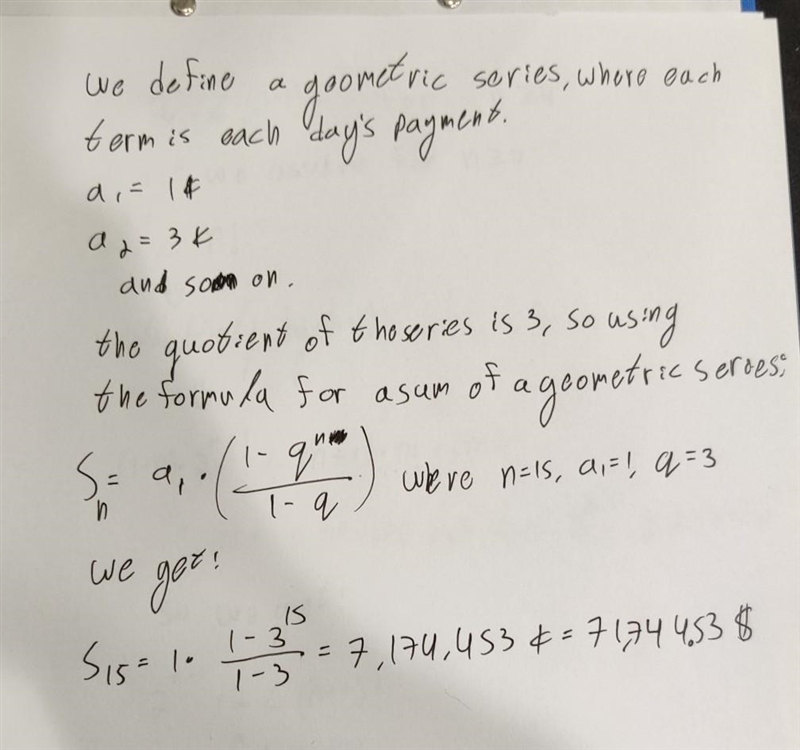 we define a geometric series, where each
term is each day's payment.
a₁ = 1¢
a₂ = 3¢
and so on.
the quotient of the series is 3, so using
the formula for a sum of a geometric seroes:
Sₙ = a₁ · ((1 - qⁿ) / (1 - q)) where n=15, a₁=1, q=3
we get:
S₁₅ = 1 · (1 - 3¹⁵) / (1 - 3) = 7,174,453 ¢ = 71,744.53 $